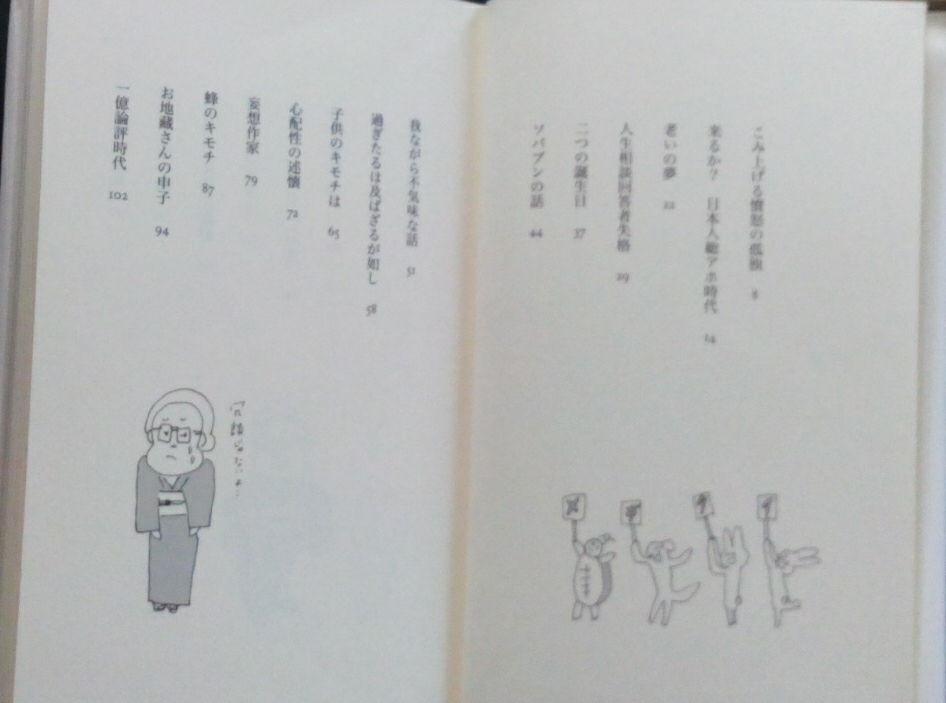 こみ上げる憤怒の孤独 8
来るか？ 日本人総アホ時代 14
老いの夢 22
人生相談回答者失格 29
二つの誕生日 37
ソバプンの話 44
我ながら不気味な話 51
過ぎたるは及ばざるが如し 58
子供のキモチは 65
心配性の述懐 72
妄想作家 79
蜂のキモチ 87
お地蔵さんの申子 94
一億論評時代 102
冗談じゃないよ…